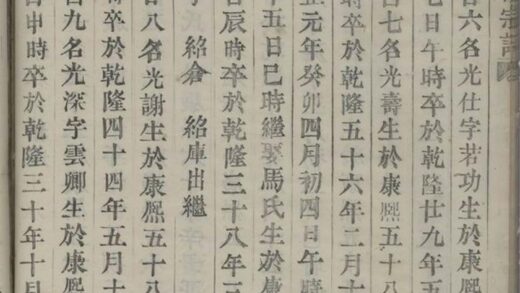 宗譜
廿六名光仕字若功生於康熙五
七日午時卒於乾隆廿九年五
廿七名光壽生於康熙五十八
時卒於乾隆五十六年二月十
正元年癸卯四月初四日午時
十五日巳時繼娶馬氏生於康
日辰時卒於乾隆三十八年三
子九 紹倉 紹庫出繼
廿八名光謝生於康熙五十八
時卒於乾隆四十四年五月十
廿九名光深字雲卿生於康熙
日申時卒於乾隆三十年十月